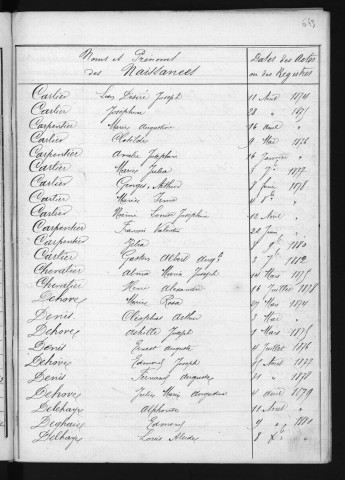 Noms et Prénoms
des Naissances
Dates des Actes
ou des Registres
Cartier Désiré Joseph 11 Avril 1874
Cartier Joséphine 28 " 1875
Carpentier Marie Augustine 16 "
Cartier Clotilde 9 Mai 1876
Carpentier Amélie Joséphine 16 Janvier "
Cartier Marie Julia 1877
Cartier Georges Arthur 8 Juin 1878
Cartier Marie
Cartier Louise Joséphine 12 Avril "
Carpentier Valentin 20 Juin "
Carpentier 1880
Cartier Gaston Albert 1882
Chevalier Marie Joseph Mars 1875
Chevalier Henri Alexandre 16 Juillet 1878
Dehove Marie Rosa 27 Mars 1874
Denis Cléophas Arthur 3 Mai "
Dehove Achille Joseph Mars 1875
Denis Ernest Auguste 4 Juillet 1876
Dehove Edmond Joseph Avril 1877
Denis Fernand Auguste " 1878
Dehove Julia Marie Augustine 4 Avril 1879
Delehaye Alphonse 11 Avril "
Edmond 9 " 1880
Delhaye Louis Alcide 8